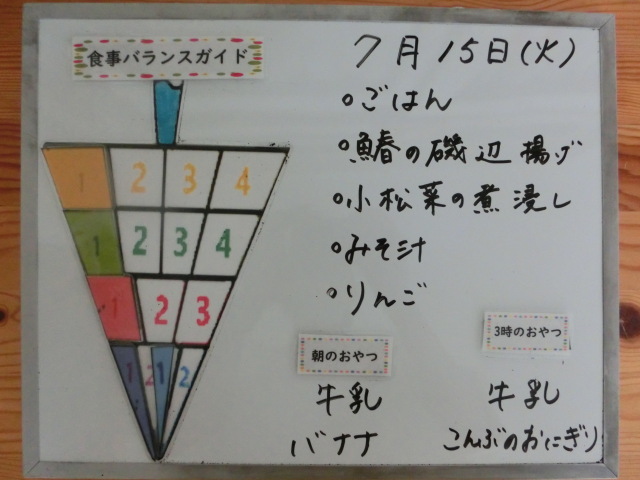 食事バランスガイド
7月15日(火)
○ごはん
○鰆の磯辺揚げ
○小松菜の煮浸し
○みそ汁
○りんご
1 2 3 4
1 2 3 4
1 2 3
1 2 1 2
朝のおやつ
牛乳
バナナ
3時のおやつ
牛乳
こんぶのおにぎり